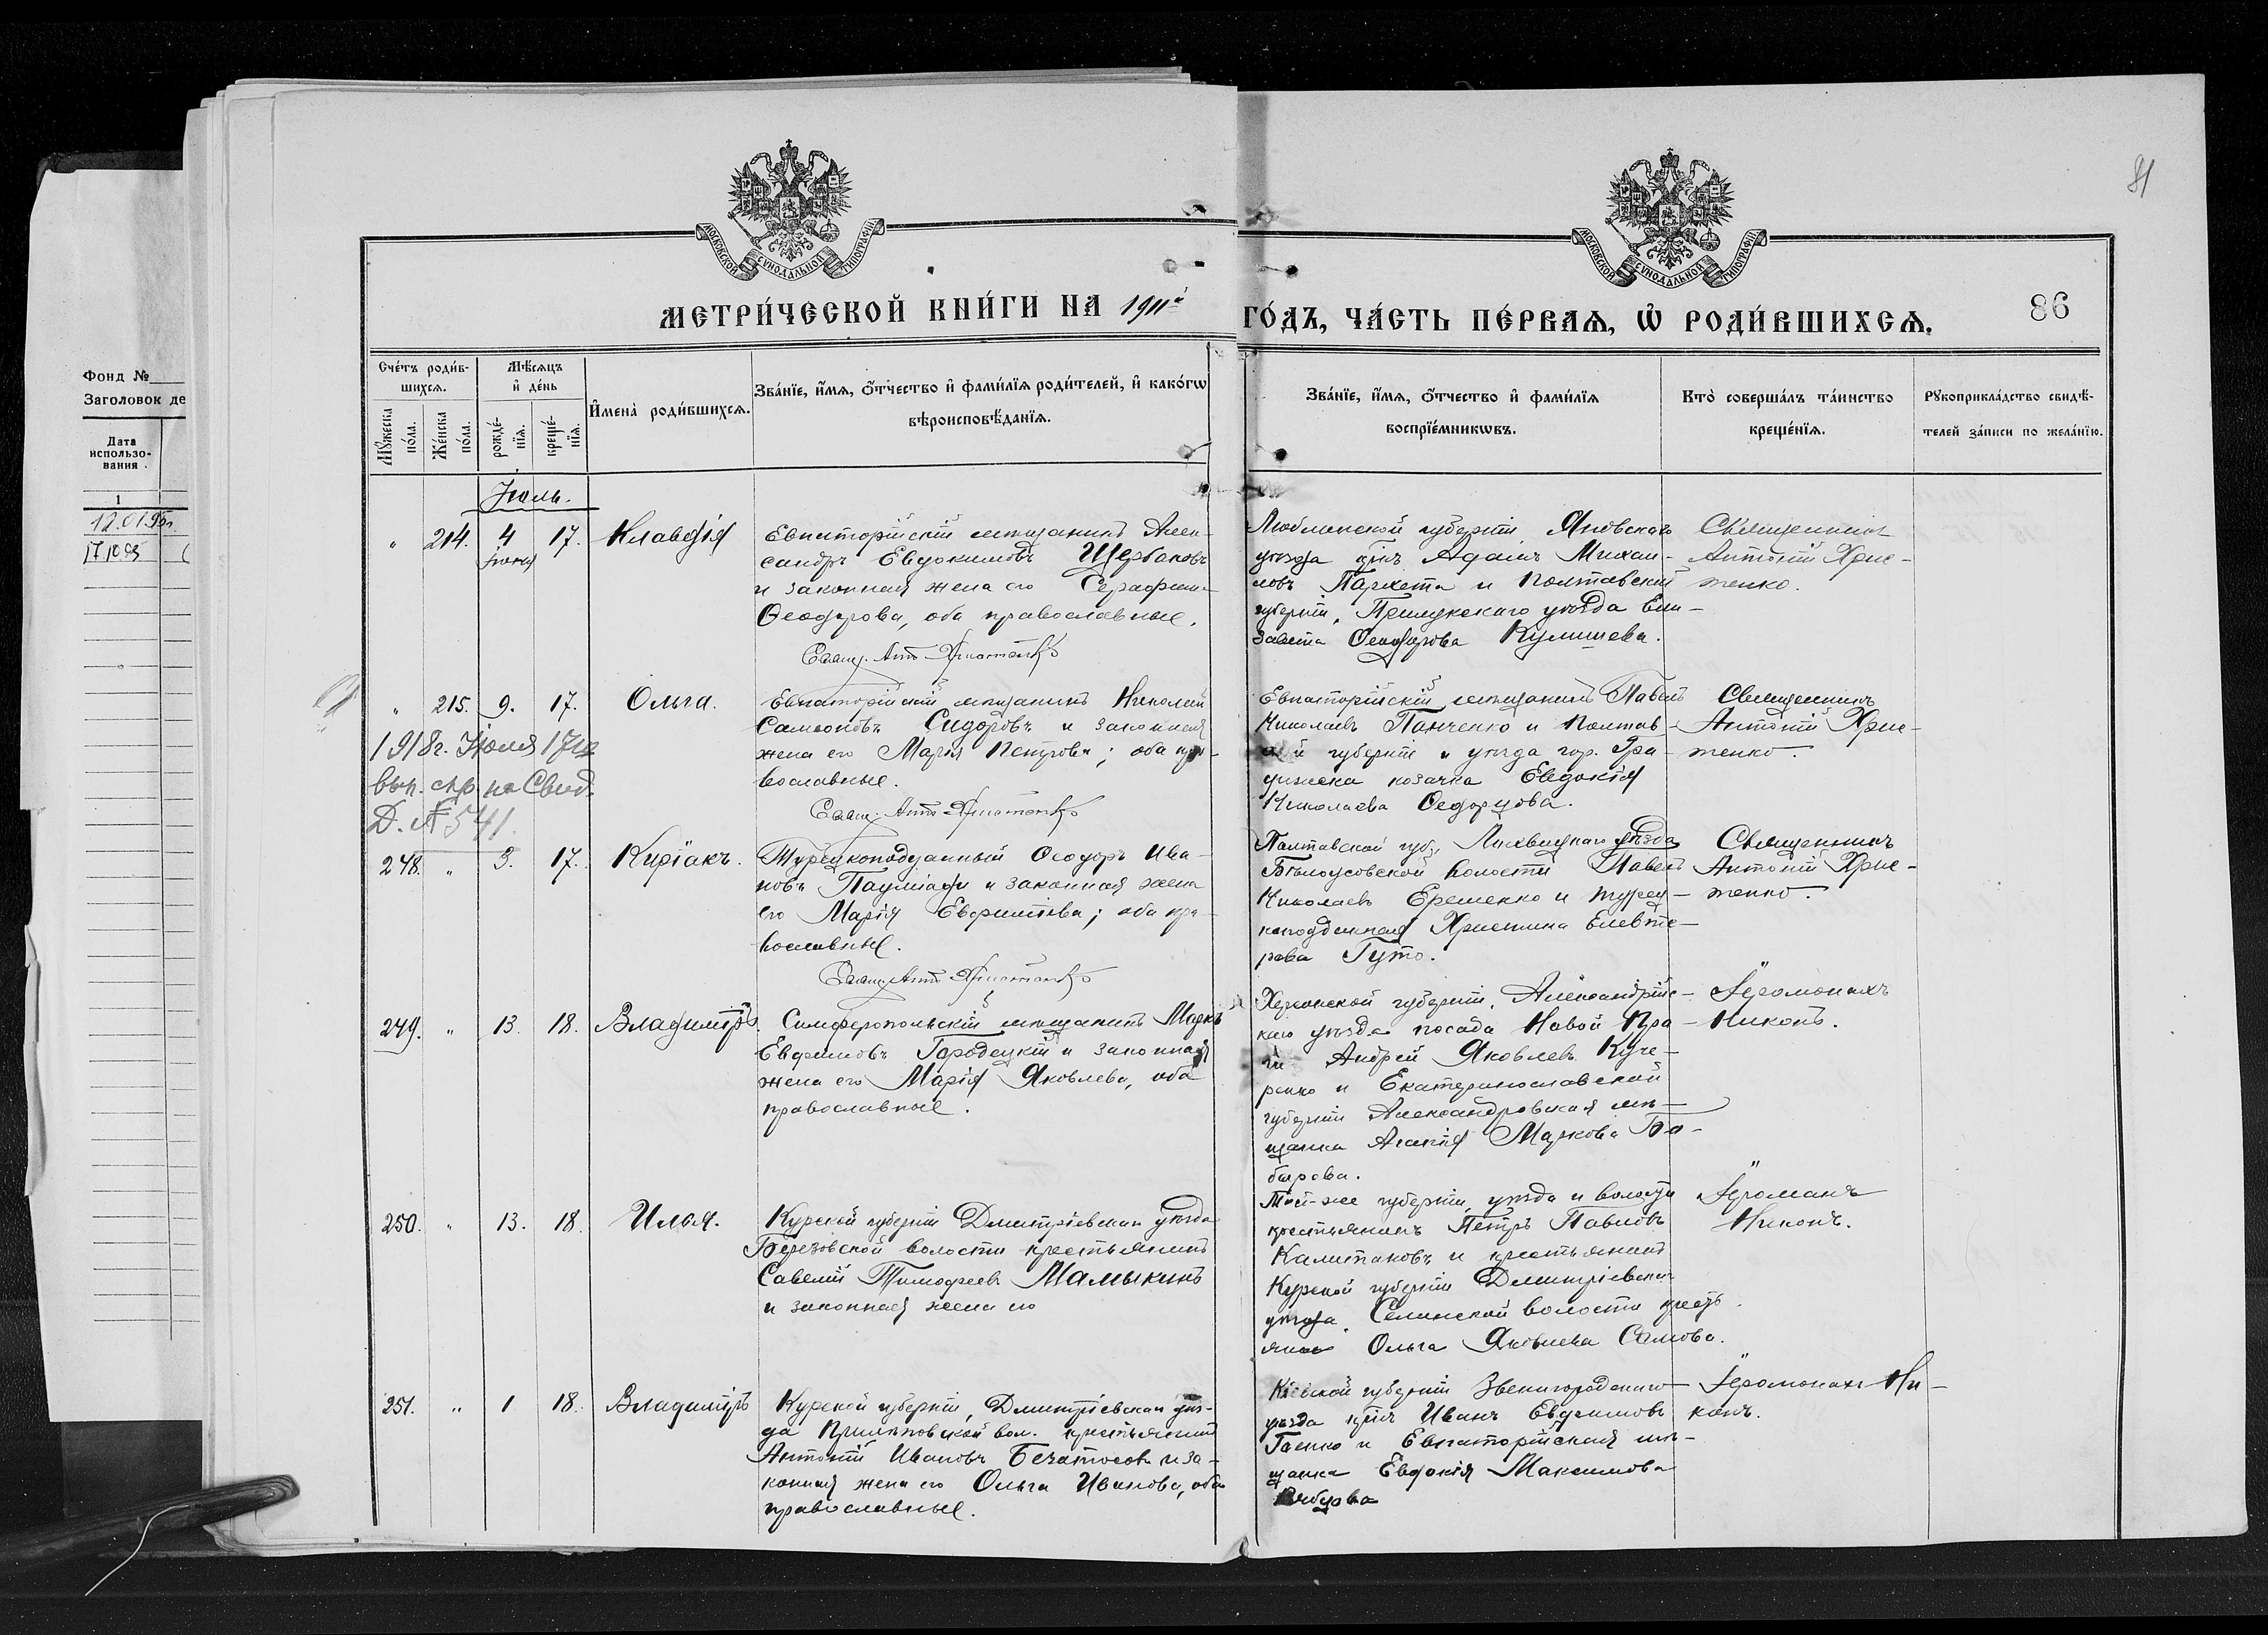 81
МОСКОВСКОЙ СѴНОДАЛЬНОЙ ТИПОГРАФІИ
МОСКОВСКОЙ СѴНОДАЛЬНОЙ ТИПОГРАФІИ
МЕТРИ́ЧЕСКОЙ КНИ́ГИ НА 1911й ГО́ДЪ, ЧА́СТЬ ПЕ́РВАѦ, Ѡ҆ РОДИ́ВШИХСѦ.
86
Фонд №
Заголовок де
Дата
использо-
вания
1
12.01.95г.
17.10.95
Сче́тъ роди́в-
шихсѧ.
Мꙋ́жеска по́ла.
Же́нска по́ла.
Мѣ́сѧцъ
и҆ де́нь
рожде́-нїѧ.
креще́-нїѧ.
И҆мена̀ роди́вшихсѧ.
Зва́нїе, и҆́мѧ, ѻ҆́тчество и҆ фами́лїѧ роди́телей, и҆ како́гѡ
вѣроисповѣ́данїѧ.
Зва́нїе, и҆́мѧ, ѻ҆́тчество и҆ фами́лїѧ
воспрїе́мникѡвъ.
Кто̀ соверша́лъ та́инство
креще́нїѧ.
Рꙋкоприкла́дство свидѣ́-
телей за́писи по жела́нїю.
Іюль.
" 214. 4 17. Клавдія
іюня
Евпаторійскій мѣщанинъ Алек-
сандръ Евдокимовъ Щербаковъ
и законная жена его Серафима
Ѳеодорова, оба православные.
Свящ. Ант. Христенко
Люблинской губерніи Яновскаго
уѣзда кр‑нъ Адамъ Михаи-
ловъ Пархета и Полтавской
губерніи, Прилукскаго уѣзда Ели-
завета Ѳеодорова Кулишева.
Священникъ
Антоній Хрис-
тенко.
" 215. 9. 17. Ольга.
Евпаторійскій мѣщанинъ Николай
Самсоновъ Сидоровъ и законная
жена его Марія Петрова; оба пра-
вославные.
Свящ. Ант. Христенко
Евпаторійскій мѣщанинъ Павелъ
Николаевъ Панченко и Полтав-
ской губерніи и уѣзда гор. Гра-
дижска козачка Евдокія
Николаева Ѳедорцова.
Священникъ
Антоній Хрис-
тенко.
1918г. Июля 17го
вып. спр. на Свид.
Д. № 541.
248. " 3. 17. Киріакъ.
Турецкоподданный Ѳеодоръ Ива-
новъ Паулиади и законная жена
его Марія Евфиміева; оба пра-
вославные.
Свящ. Ант. Христенко
Полтавской губ., Лохвицкаго уѣзда
Бѣлоусовской волости Павелъ
Николаевъ Еременко и турец-
коподданная Христина Елевте-
рова Гуто.
Священникъ
Антоній Хрис-
тенко.
249. " 13. 18. Владиміръ.
Симферопольскій мѣщанинъ Маркъ
Евфимовъ Городецкій и законная
жена его Марія Яковлева, оба
православные.
Херсонской губерніи, Александрійс-
каго уѣзда посада Новой Пра-
ги Андрей Яковлевъ Куче-
ренко и Екатеринославской
губерніи Александровская мѣ-
щанка Агапія Маркова Бо-
бырова.
Іеромонахъ
Никонъ.
250. " 13. 18. Илья.
Курской губерніи Дмитріевскаго уѣзда
Березовской волости крестьянинъ
Савелій Тимофеевъ Мамыкинъ
и законная жена его
Той-же губерніи, уѣзда и волости
крестьянинъ Петръ Павловъ
Калитановъ и крестьянинъ
Курской губерніи Дмитріевскаго
уѣзда, Селинской волости кресть-
янка Ольга Яковлева Самова.
Іеромонахъ
Никонъ.
251. " 1 18. Владиміръ
Курской губерніи, Дмитріевскаго уѣз-
да вол. крестьянинъ
Антоній Ивановъ и за-
конная жена его Ольга Иванова, оба
православные.
Кіевской губерніи Звенигородскаго
уѣзда кр‑нъ Иванъ Евфимовъ
Гаенко и Евпаторійская мѣ-
щанка Евдокія Максимова
Іеромонахъ Ни-
конъ.